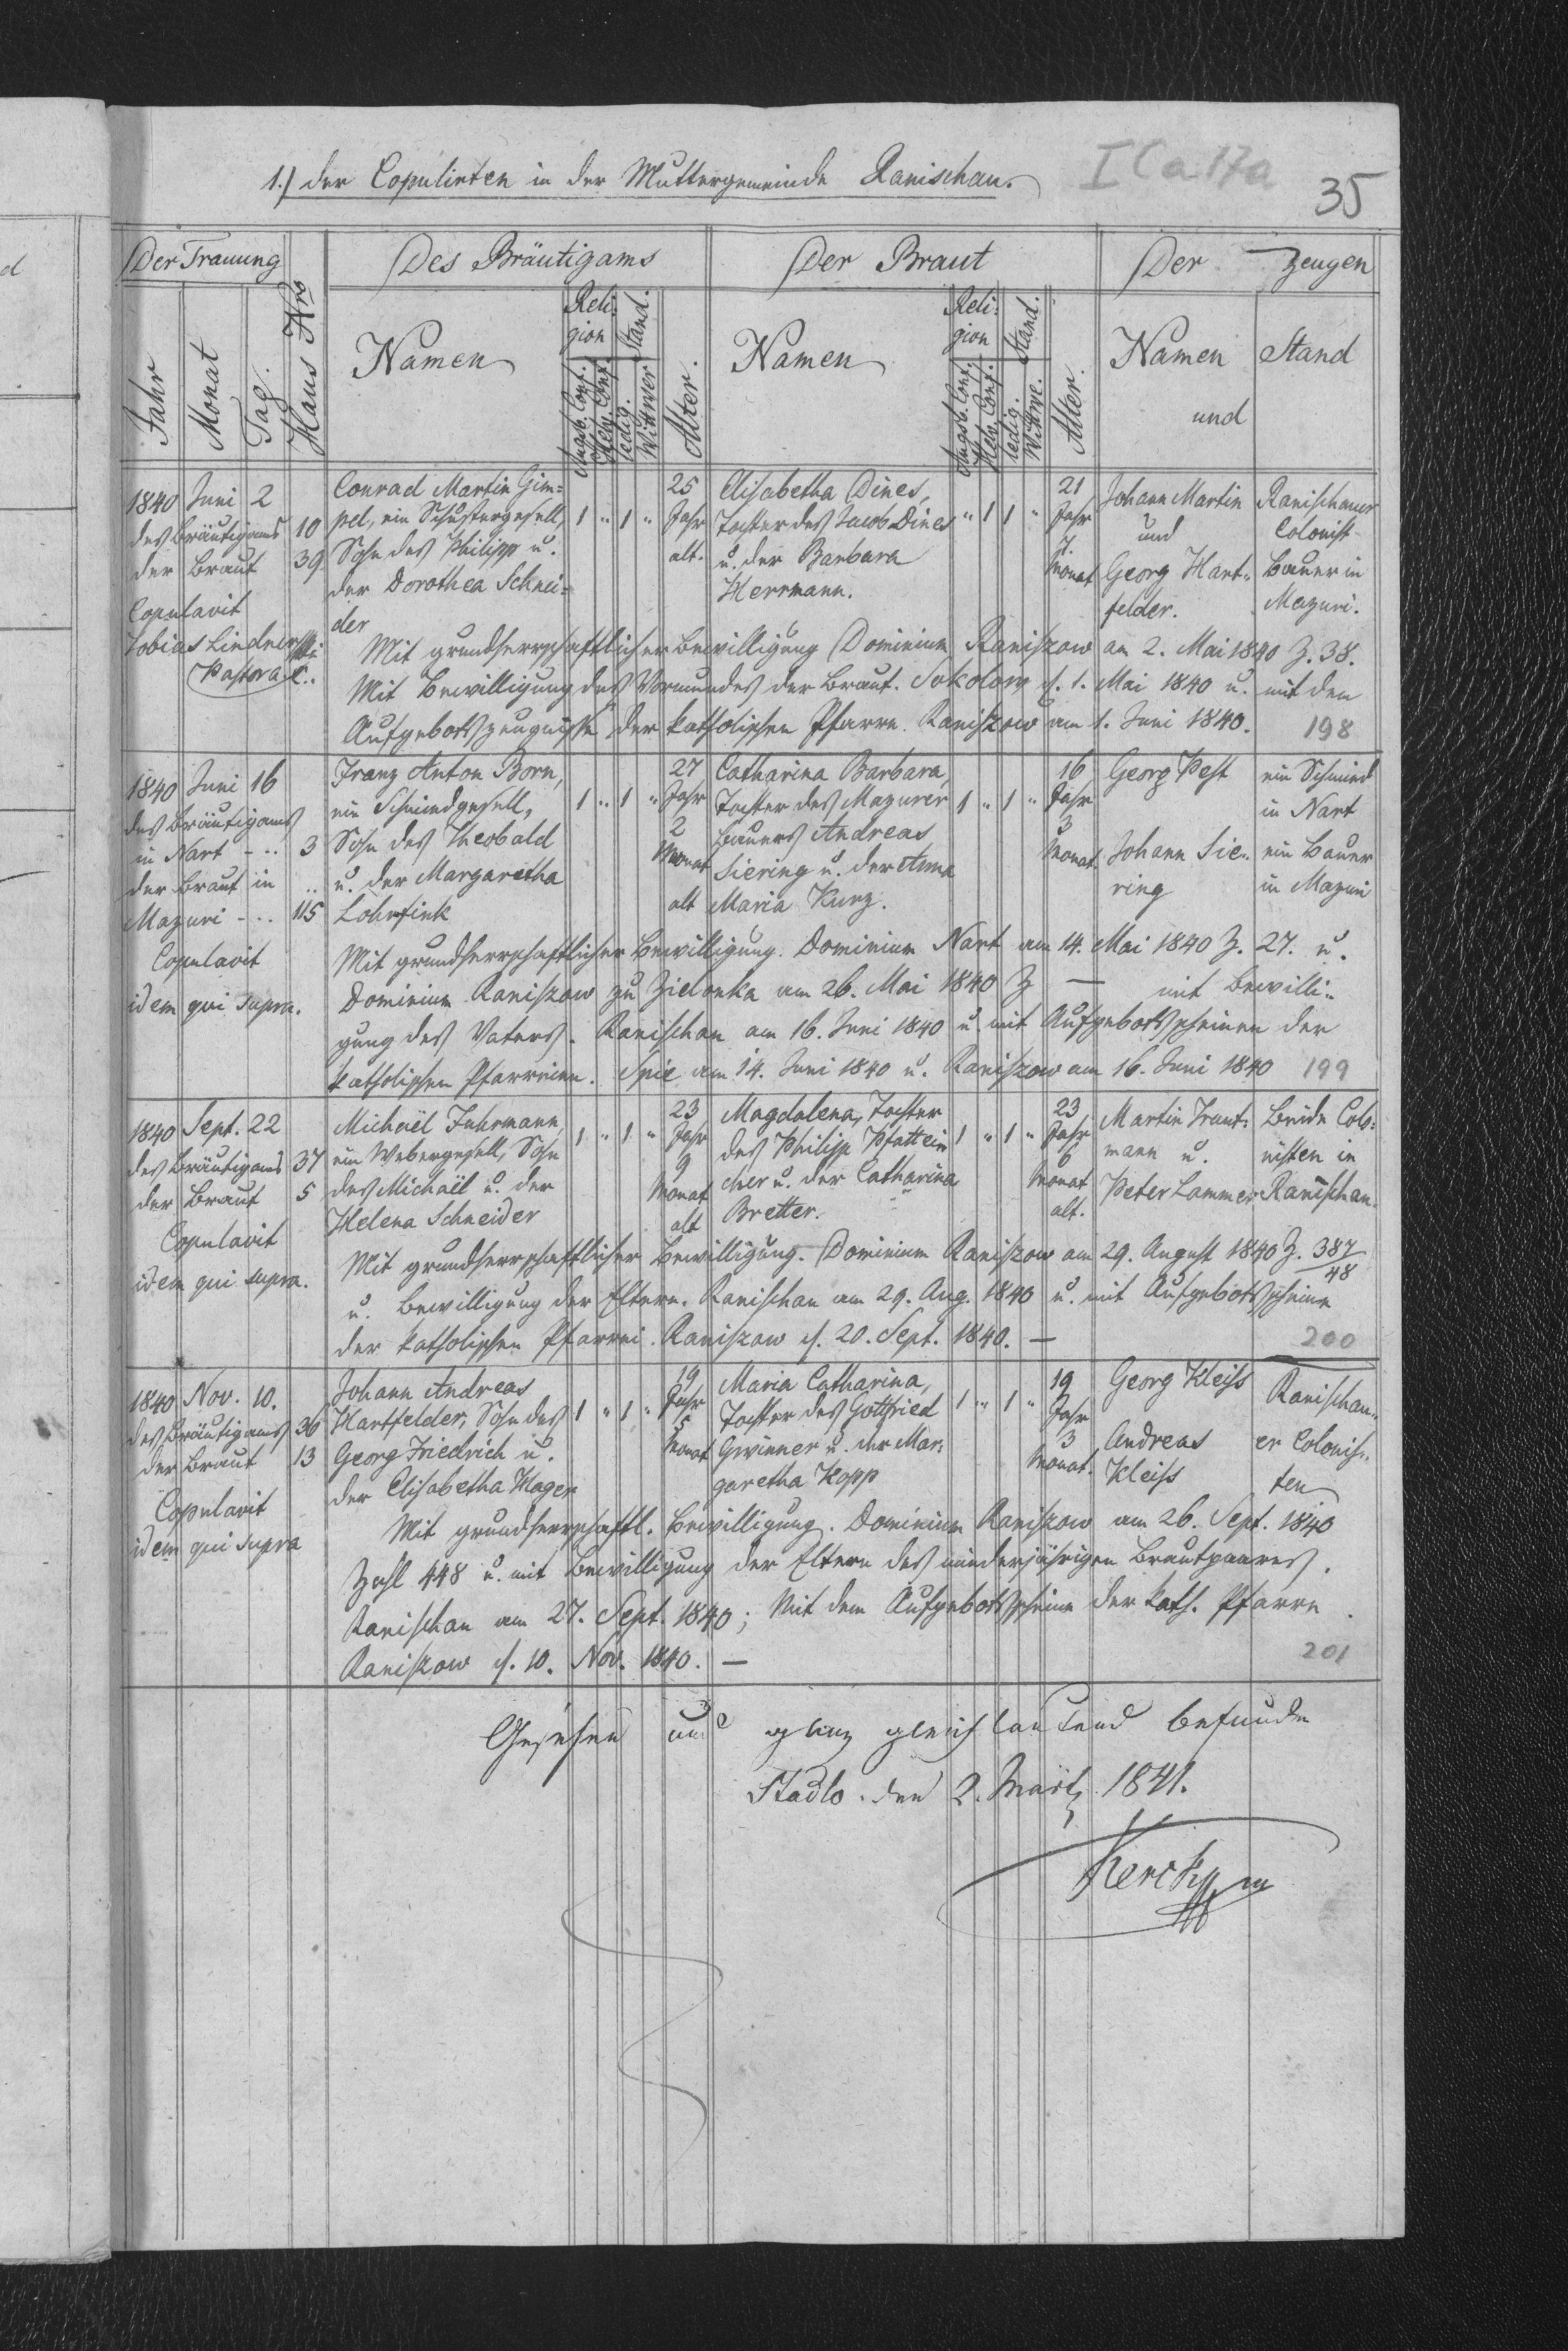 1.) der Copulirten in der Muttergemeinde Ranischau.
I C a 17a
35
Der Trauung
Des Bräutigams
Der Braut
Der Zeugen
Jahr
Monat
Tag.
Haus Nro
Namen
Reli:
gion
Stand.
Augsb. Conf.
Helv. Conf.
ledig.
Wittwer
Alter.
Namen
Reli:
gion
Stand.
Augsb. Conf.
Helv. Conf.
ledig.
Wittwe.
Alter.
Namen
und
Stand
1840 Juni 2
des Bräutigams 10
der Braut 39
Copulavit
Tobias Lindner
Pastor A. C.
Conrad Martin Gim=
pel, ein Schustergesell,
Sohn des Philipp u.
der Dorothea Schnei=
der
1 " 1 "
25
Jahr
alt.
Elisabetha Dines,
Tochter des Jacob Dines
u. der Barbara
Herrmann.
" 1 1 "
21
Jahr
7.
Monat
Johann Martin
und
Georg Hart=
felder.
Ranischauer
Colonist
Bauer in
Mazuri.
Mit grundherrschaftlicher Bewilligung Dominium Raniszow am 2. Mai 1840 Z. 38.
Mit Bewilligung des Vormundes der Braut. Sokolow d. 1. Mai 1840 u. mit den
Aufgebotszeugnisse der katholischen Pfarre. Raniszow am 1. Juni 1840.
198
1840 Juni 16
des Bräutigams
in Nart - .. 3
der Braut in ..
Mazuri - .. 115
Copulavit
idem qui supra.
Franz Anton Born,
ein Schmiedgesell,
Sohn des Theobald
u. der Margaretha
Lohrfink
1 " 1 "
27
Jahr
2
Monat
alt
Catharina Barbara,
Tochter des Mazurer
Bauers Andreas
Siering u. der Anna
Maria Kunz.
1 " 1 "
16
Jahr
3
Monat.
Georg Pest
Johann Sie=
ring
ein Schmied
in Nart
ein Bauer
in Mazuri
Mit grundherrschaftlicher Bewilligung. Dominium Nart am 14. Mai 1840 Z. 27. u.
Dominium Raniszow zu Zielonka am 26. Mai 1840 Z — mit Bewilli=
gung des Vaters. Ranischau am 16. Juni 1840 u. mit Aufgebotsscheinen der
katholischen Pfarreien. Spie am 14. Juni 1840 u. Raniszow am 16. Juni 1840
199
1840 Sept. 22
des Bräutigams 37
der Braut 5
Copulavit
idem qui supra.
Michaël Fuhrmann,
ein Webergesell, Sohn
des Michaël u. der
Helena Schneider
1 " 1 "
23
Jahr
9
Monat
alt
Magdalena, Tochter
des Philipp Pfattein
cher u. der Catharina
Bretter.
1 " 1 "
23
Jahr
6
Monat
alt.
Martin Traut=
mann u.
Peter Lammer
Beide Colo=
nisten in
Ranischau.
Mit grundherrschaftlicher Bewilligung. Dominium Raniszow am 29. August 1840 Z. 387/48
u. Bewilligung der Eltern. Ranischau am 29. Aug. 1840 u. mit Aufgebotsscheine
der katholischen Pfarrei. Raniszow d. 20. Sept. 1840. —
200
1840 Nov. 10.
des Bräutigams 36
der Braut 13
Copulavit
idem qui supra
Johann Andreas
Hartfelder, Sohn des
Georg Friedrich u.
der Elisabetha Hager
1 " 1 "
19
Jahr
5
Monat
Maria Catharina,
Tochter des Gottfried
Gwinner u. der Mar=
garetha Kopp
1 " 1 "
19
Jahr
3
Monat.
Georg Kleiss
Andreas
Kleiss
Ranischau=
er Colonis=
ten
Mit grundherrschaftl. Bewilligung. Dominium Raniszow am 26. Sept. 1840
Zahl 448 u. mit Bewilligung der Eltern des minderjährigen Brautpaares.
Ranischau am 27. Sept. 1840; Mit dem Aufgebotsscheine der kath. Pfarre
Raniszow d. 10. Nov. 1840. —
201
Gesehen und ganz gleichlautend befunden
Stadlo. den 2. März 1841.